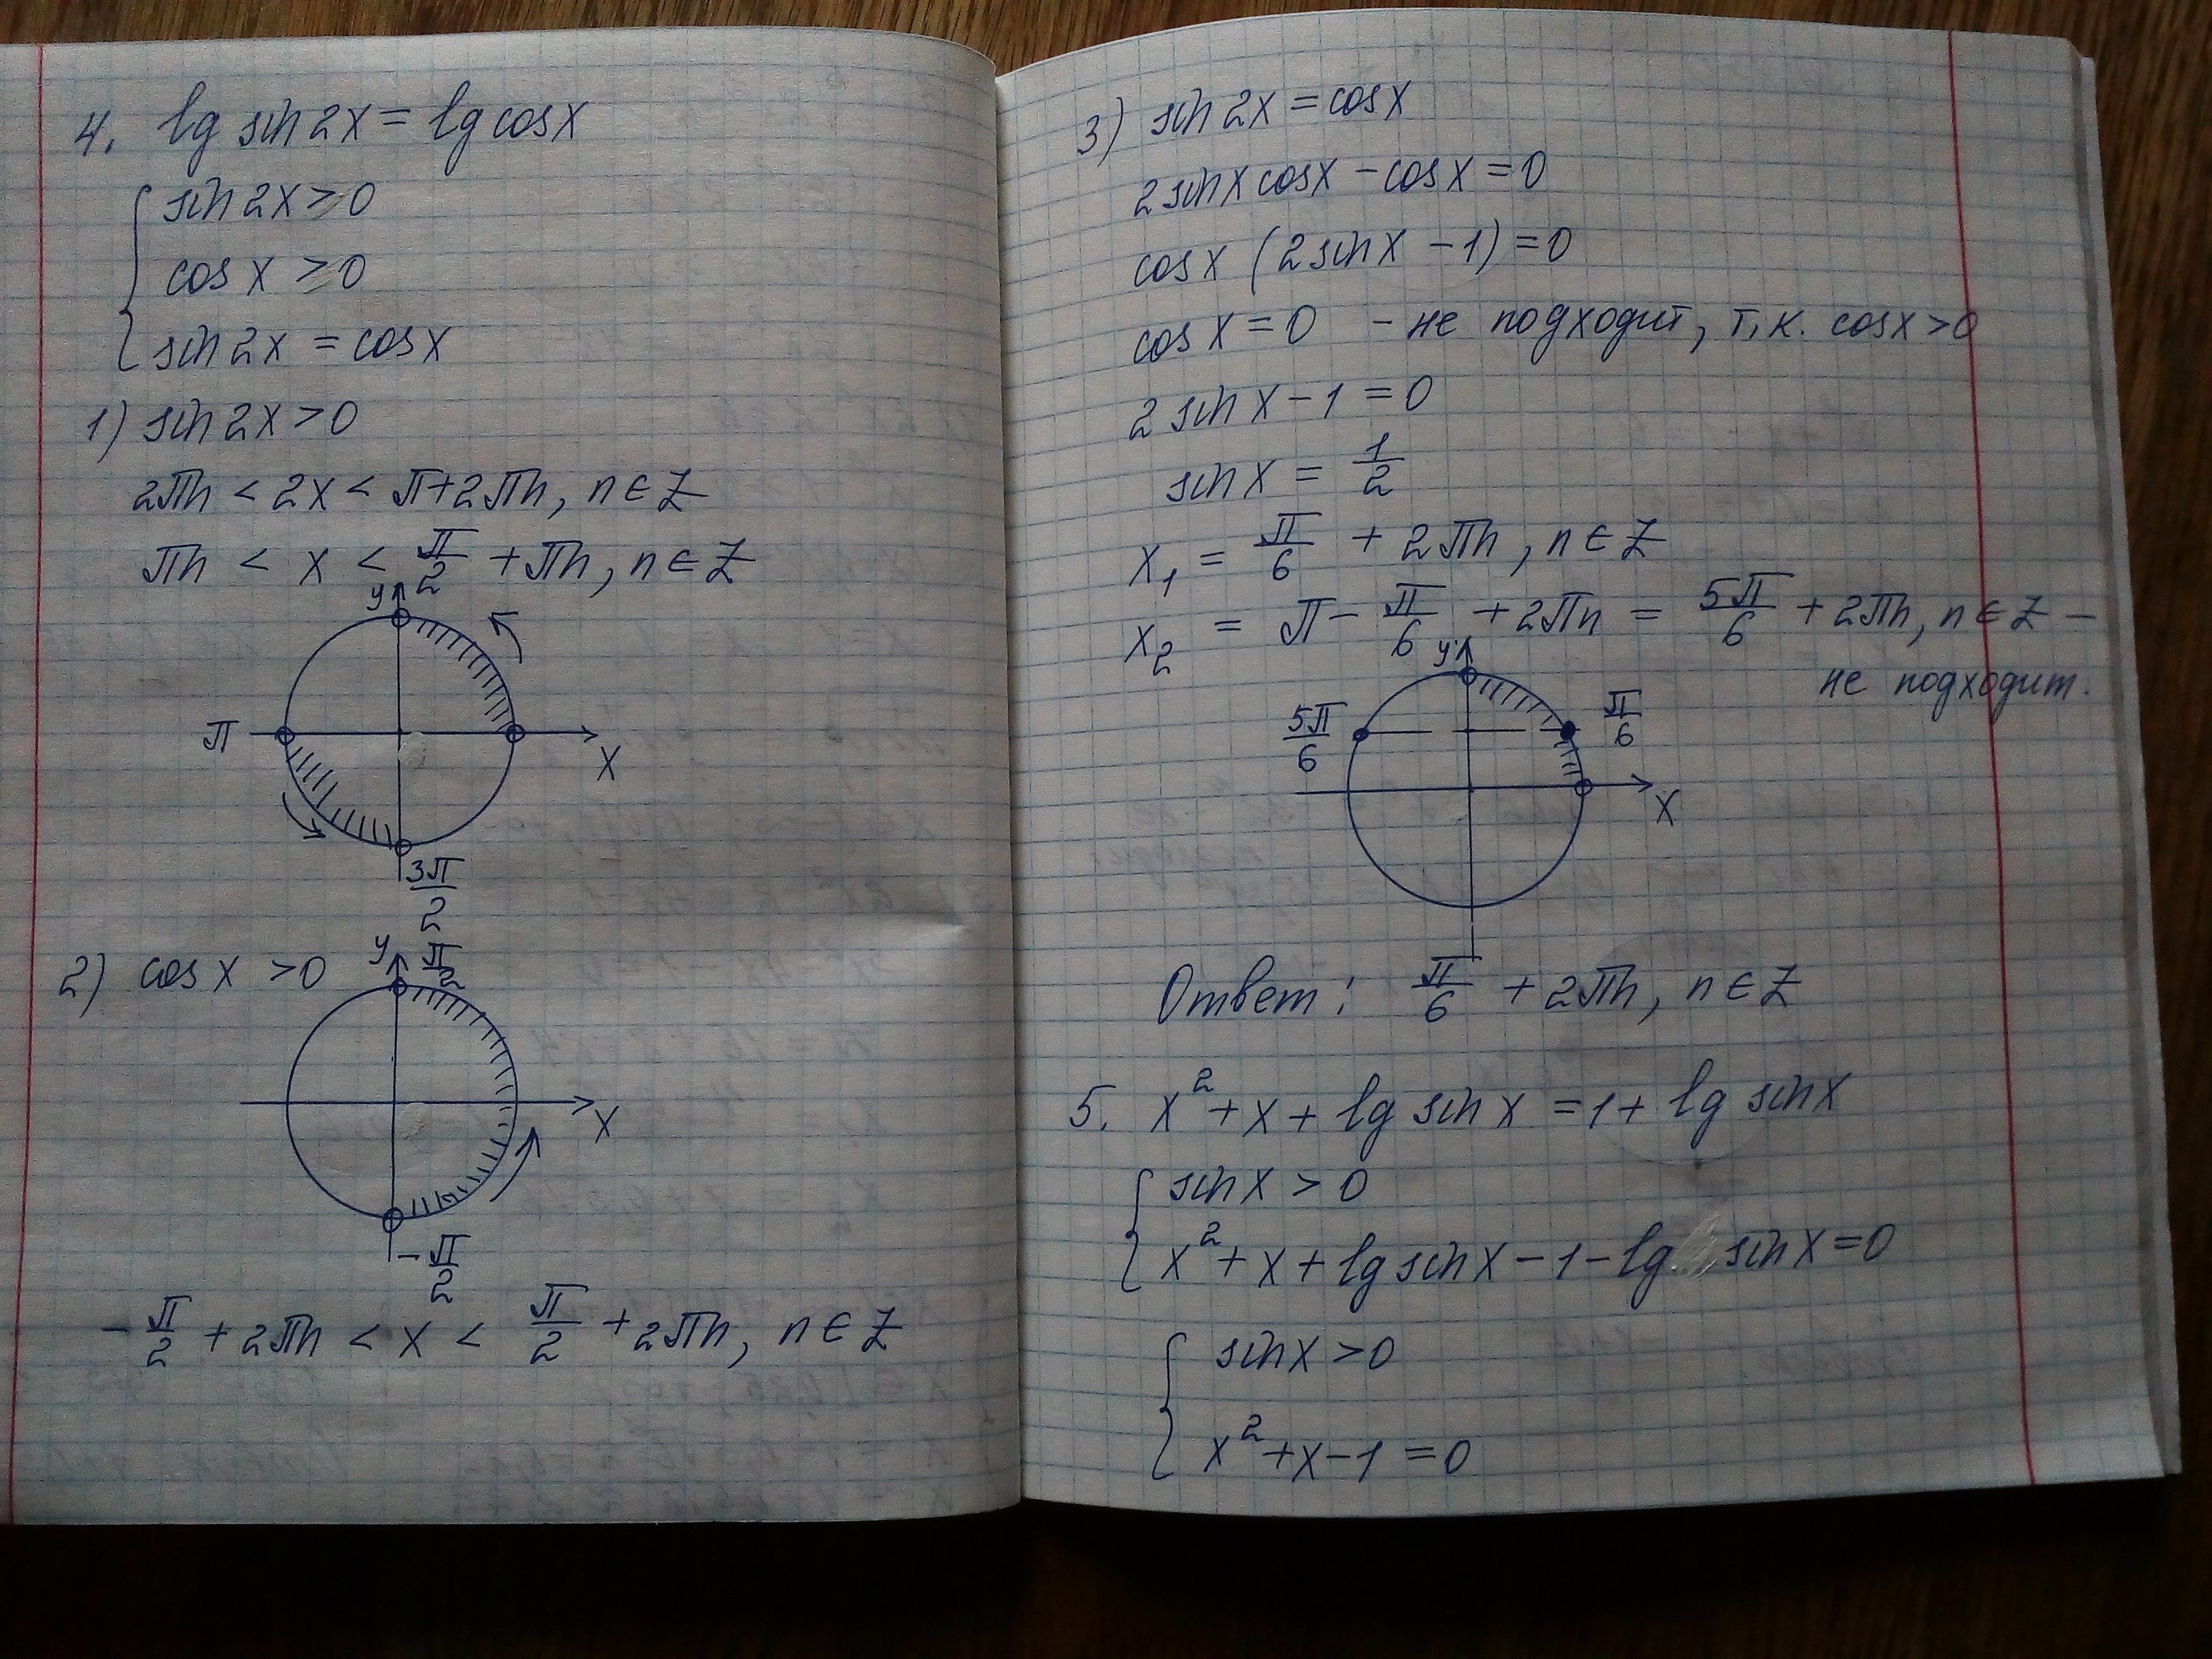 4. lg sin 2x = lg cos x
sin 2x > 0
cos x > 0
sin 2x = cos x
1) sin 2x > 0
2πn < 2x < π + 2πn, n ∈ Z
πn < x < π/2 + πn, n ∈ Z
y
π
x
3π/2
2) cos x > 0
y π/2
x
-π/2
-π/2 + 2πn < x < π/2 + 2πn, n ∈ Z
3) sin 2x = cos x
2 sin x cos x - cos x = 0
cos x (2 sin x - 1) = 0
cos x = 0 - не подходит, т.к. cos x > 0
2 sin x - 1 = 0
sin x = 1/2
x₁ = π/6 + 2πn, n ∈ Z
x₂ = π - π/6 + 2πn = 5π/6 + 2πn, n ∈ Z -
не подходит.
y
5π/6 π/6
x
Ответ: π/6 + 2πn, n ∈ Z
5. x² + x + lg sin x = 1 + lg sin x
sin x > 0
x² + x + lg sin x - 1 - lg sin x = 0
sin x > 0
x² + x - 1 = 0